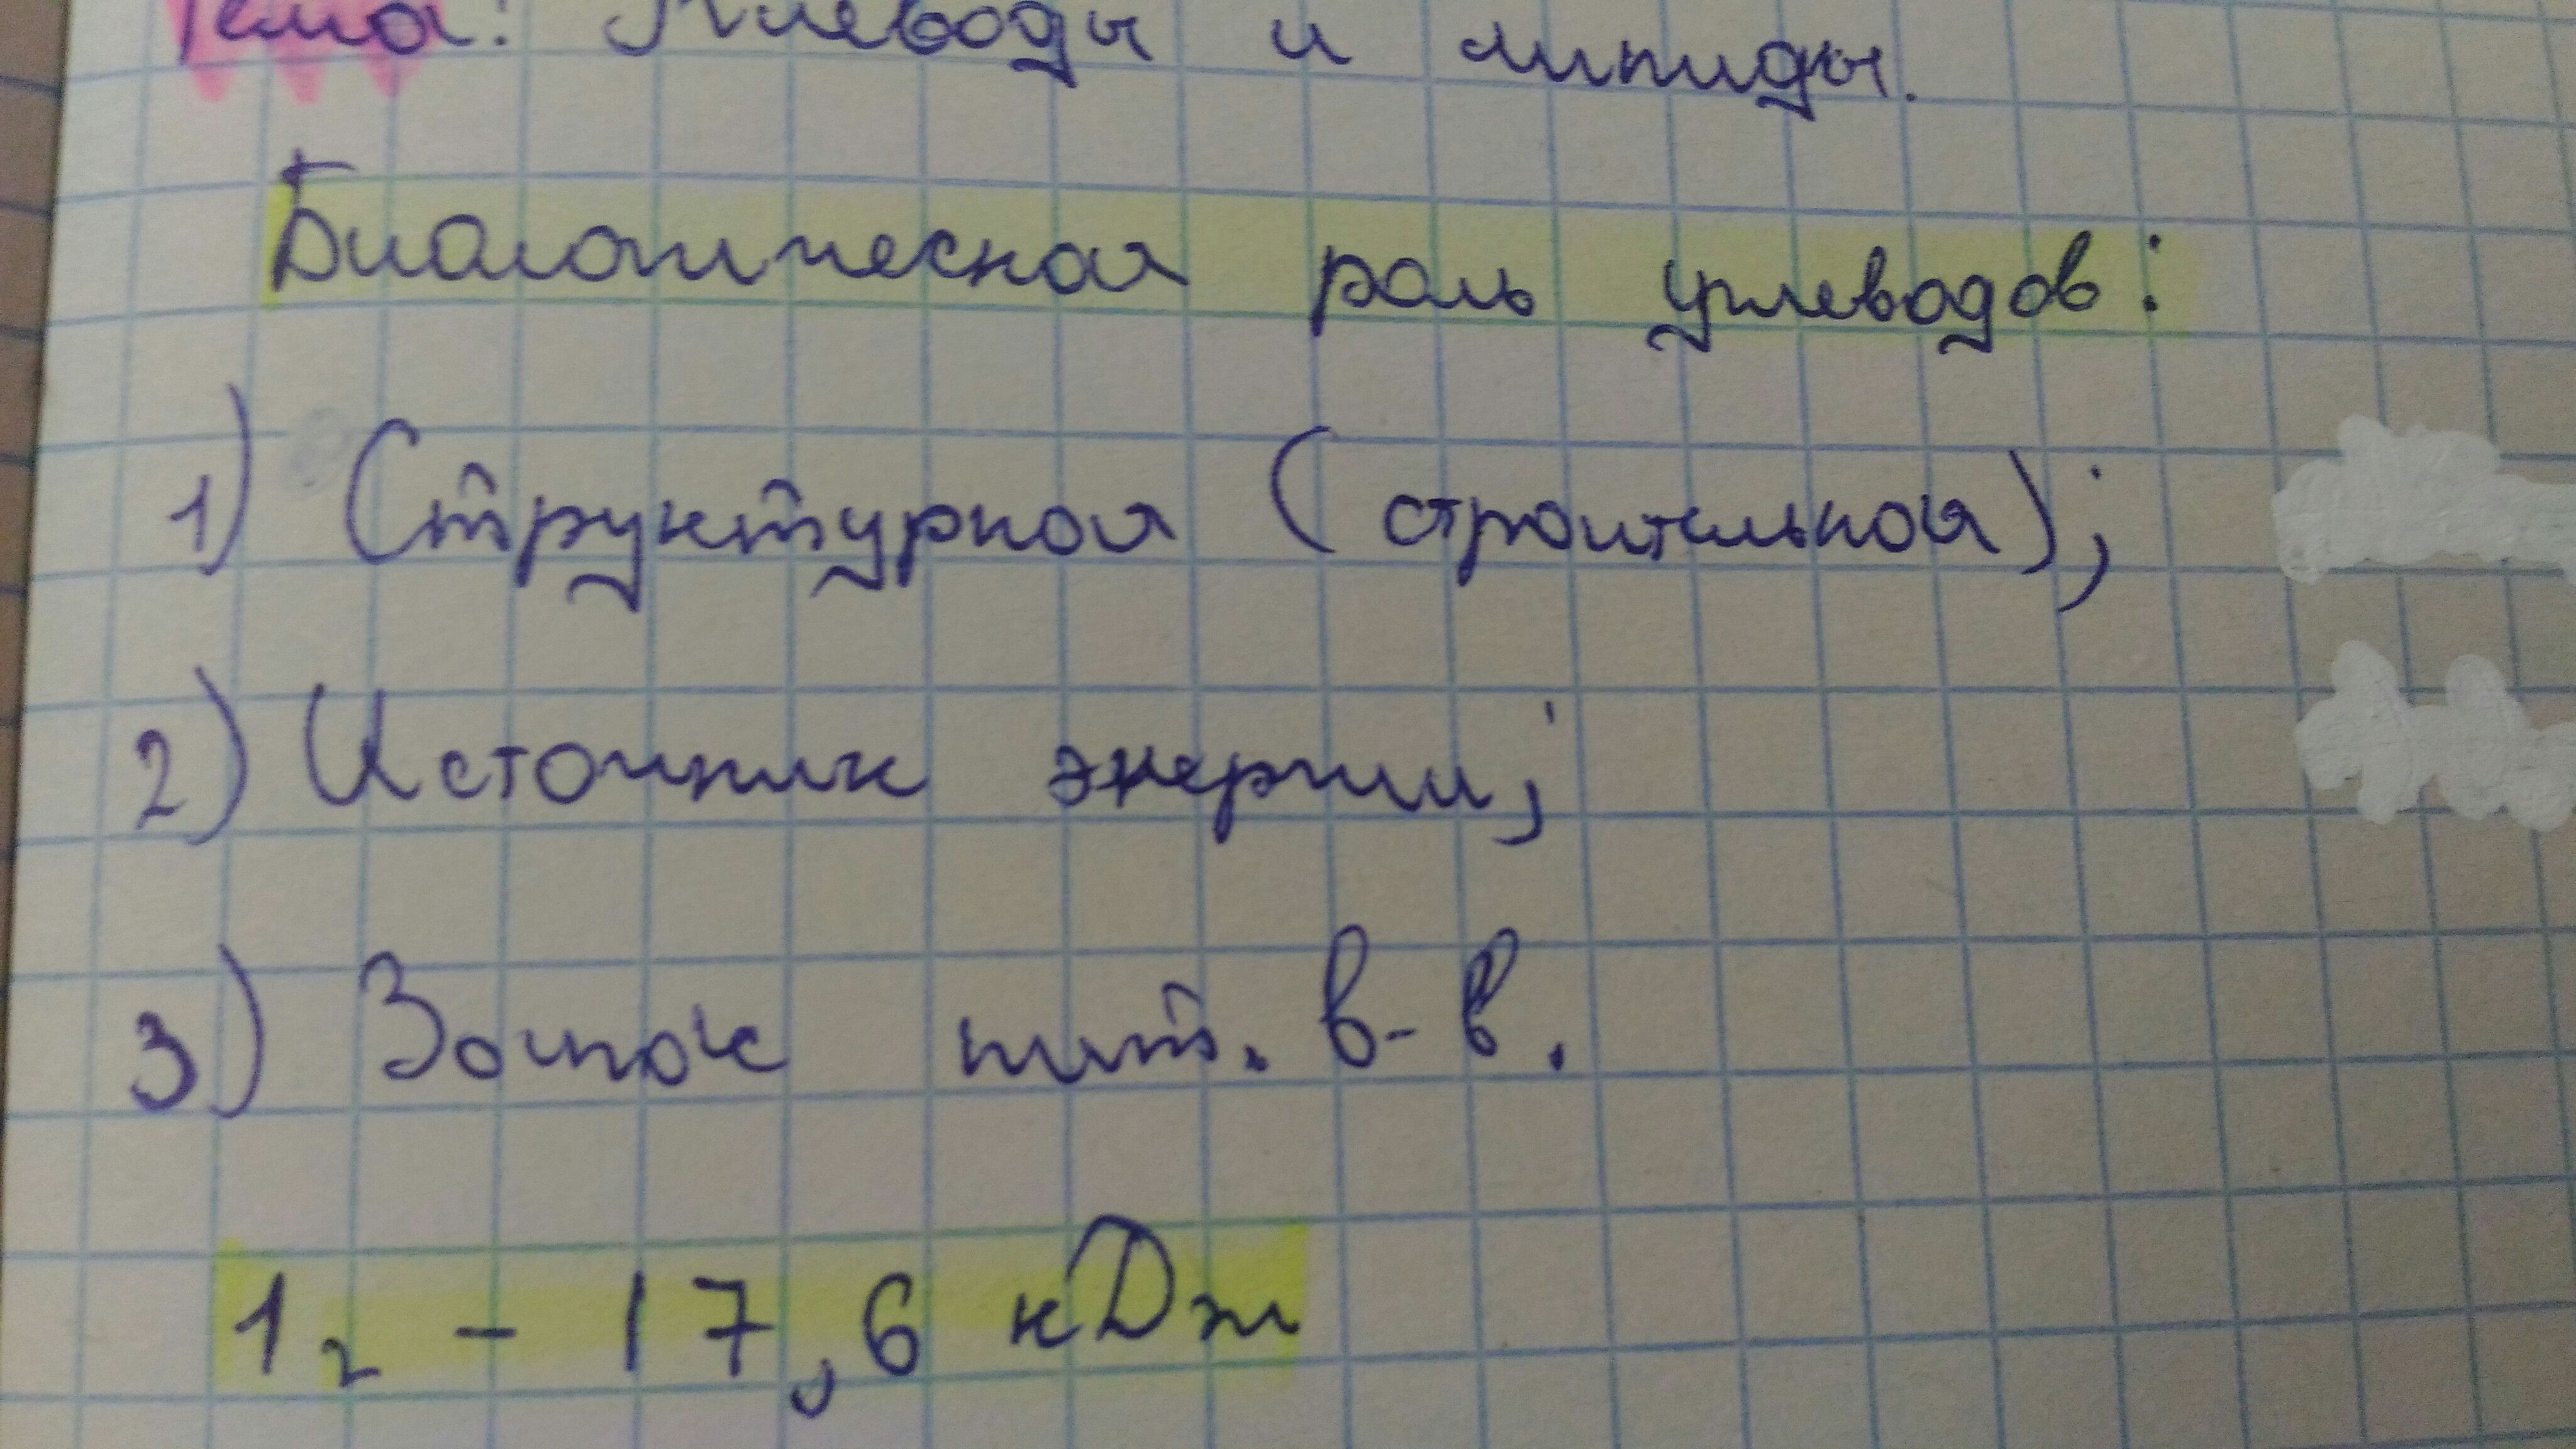 Тема: Углеводы и липиды.
Биологическая роль углеводов:
1) Структурная (строительная);
2) Источник энергии;
3) Запас пит. в-в.
1г - 17,6 кДж